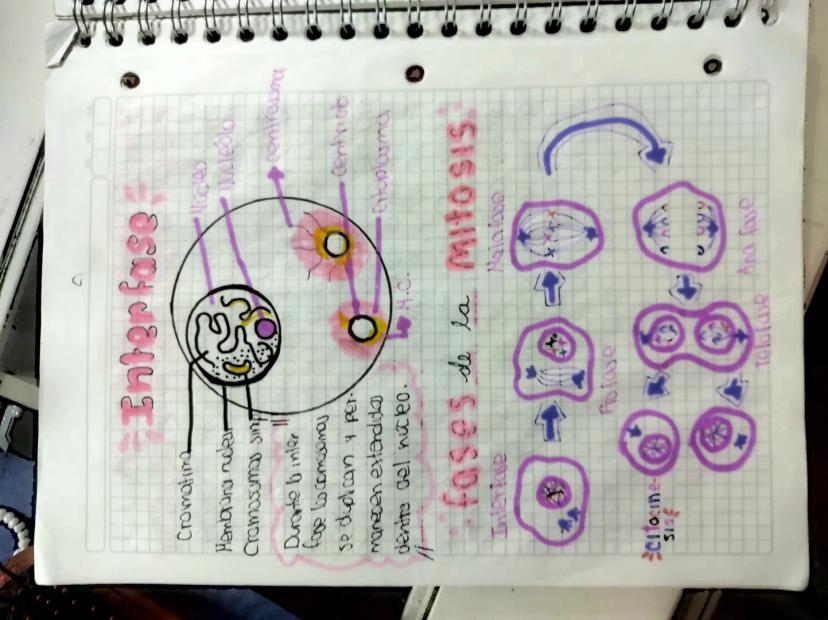 Interfase
Núcleo
Nucleolo
centrosoma
Centriolo
Citoplasma
M.C.
Cromatina
Membrana nuclear
Durante la inter
fase los cromosomas
se duplican y per-
manecen extendidos
dentro del núcleo.
fases de la MITOSIS
Interfase
Profase
Metafase
Ana fase
Telofase
citocine-
sis